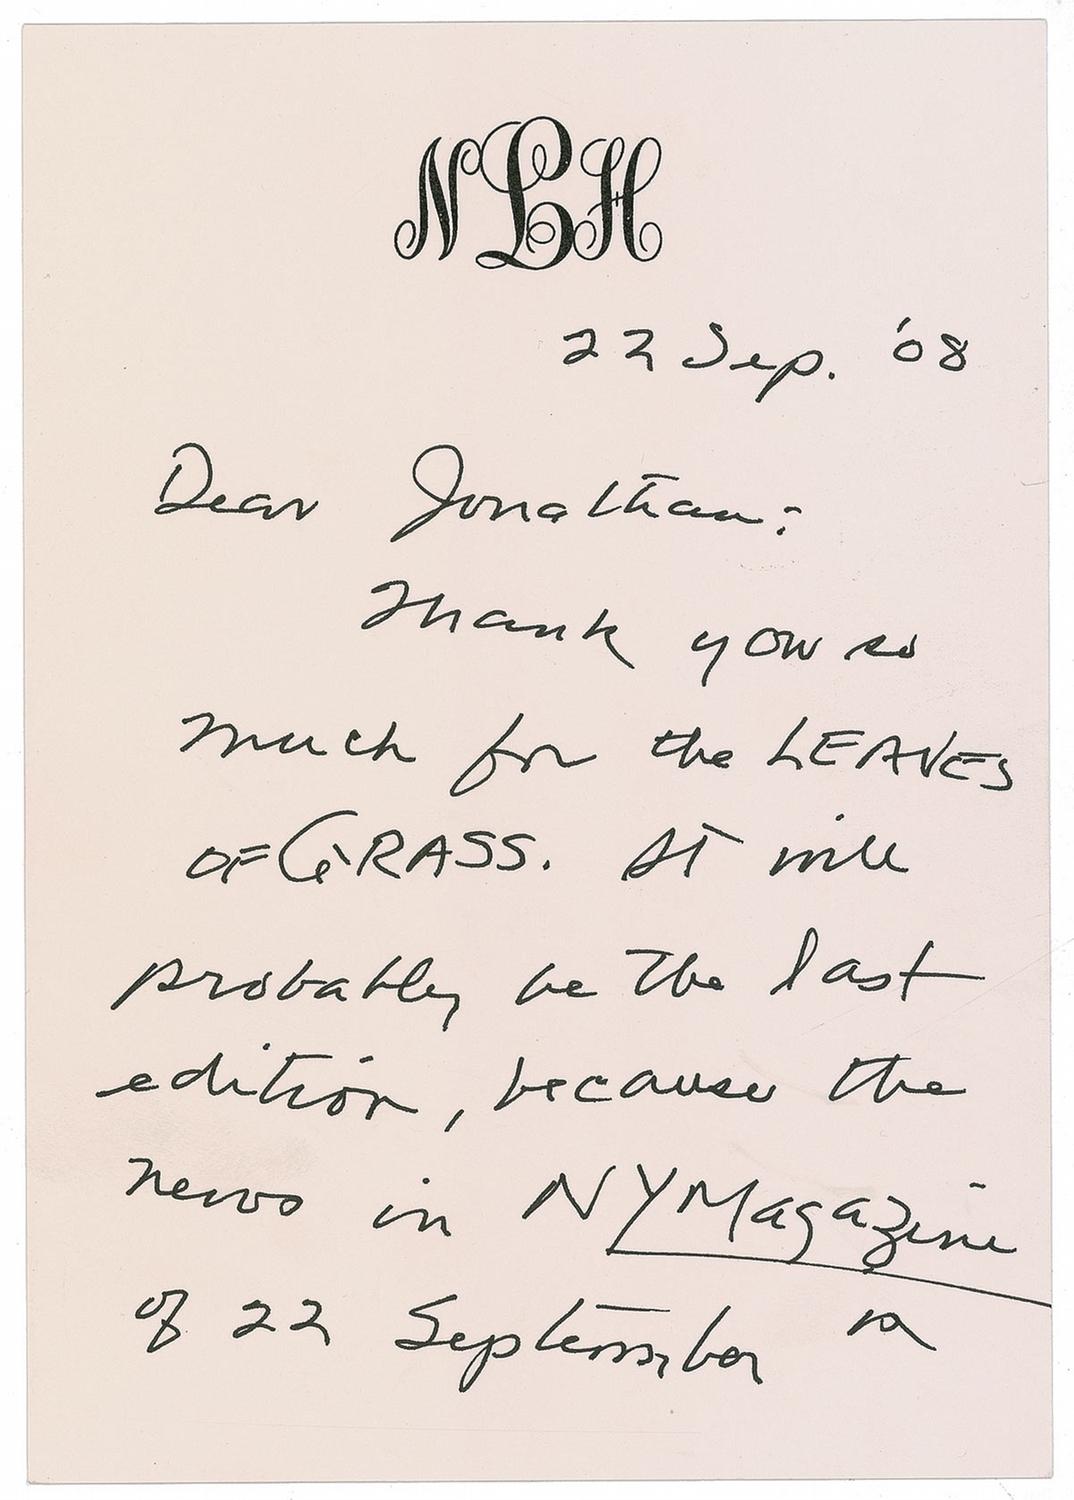 NLH
22 Sep. '08
Dear Jonathan:
Thank you so
much for the LEAVES
OF GRASS. It will
probably be the last
edition, because the
news in NYMagazine
of 22 September is